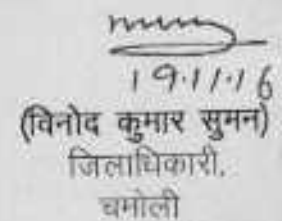 19.11.16
(विनोद कुमार सुमन)
जिलाधिकारी,
चमोली